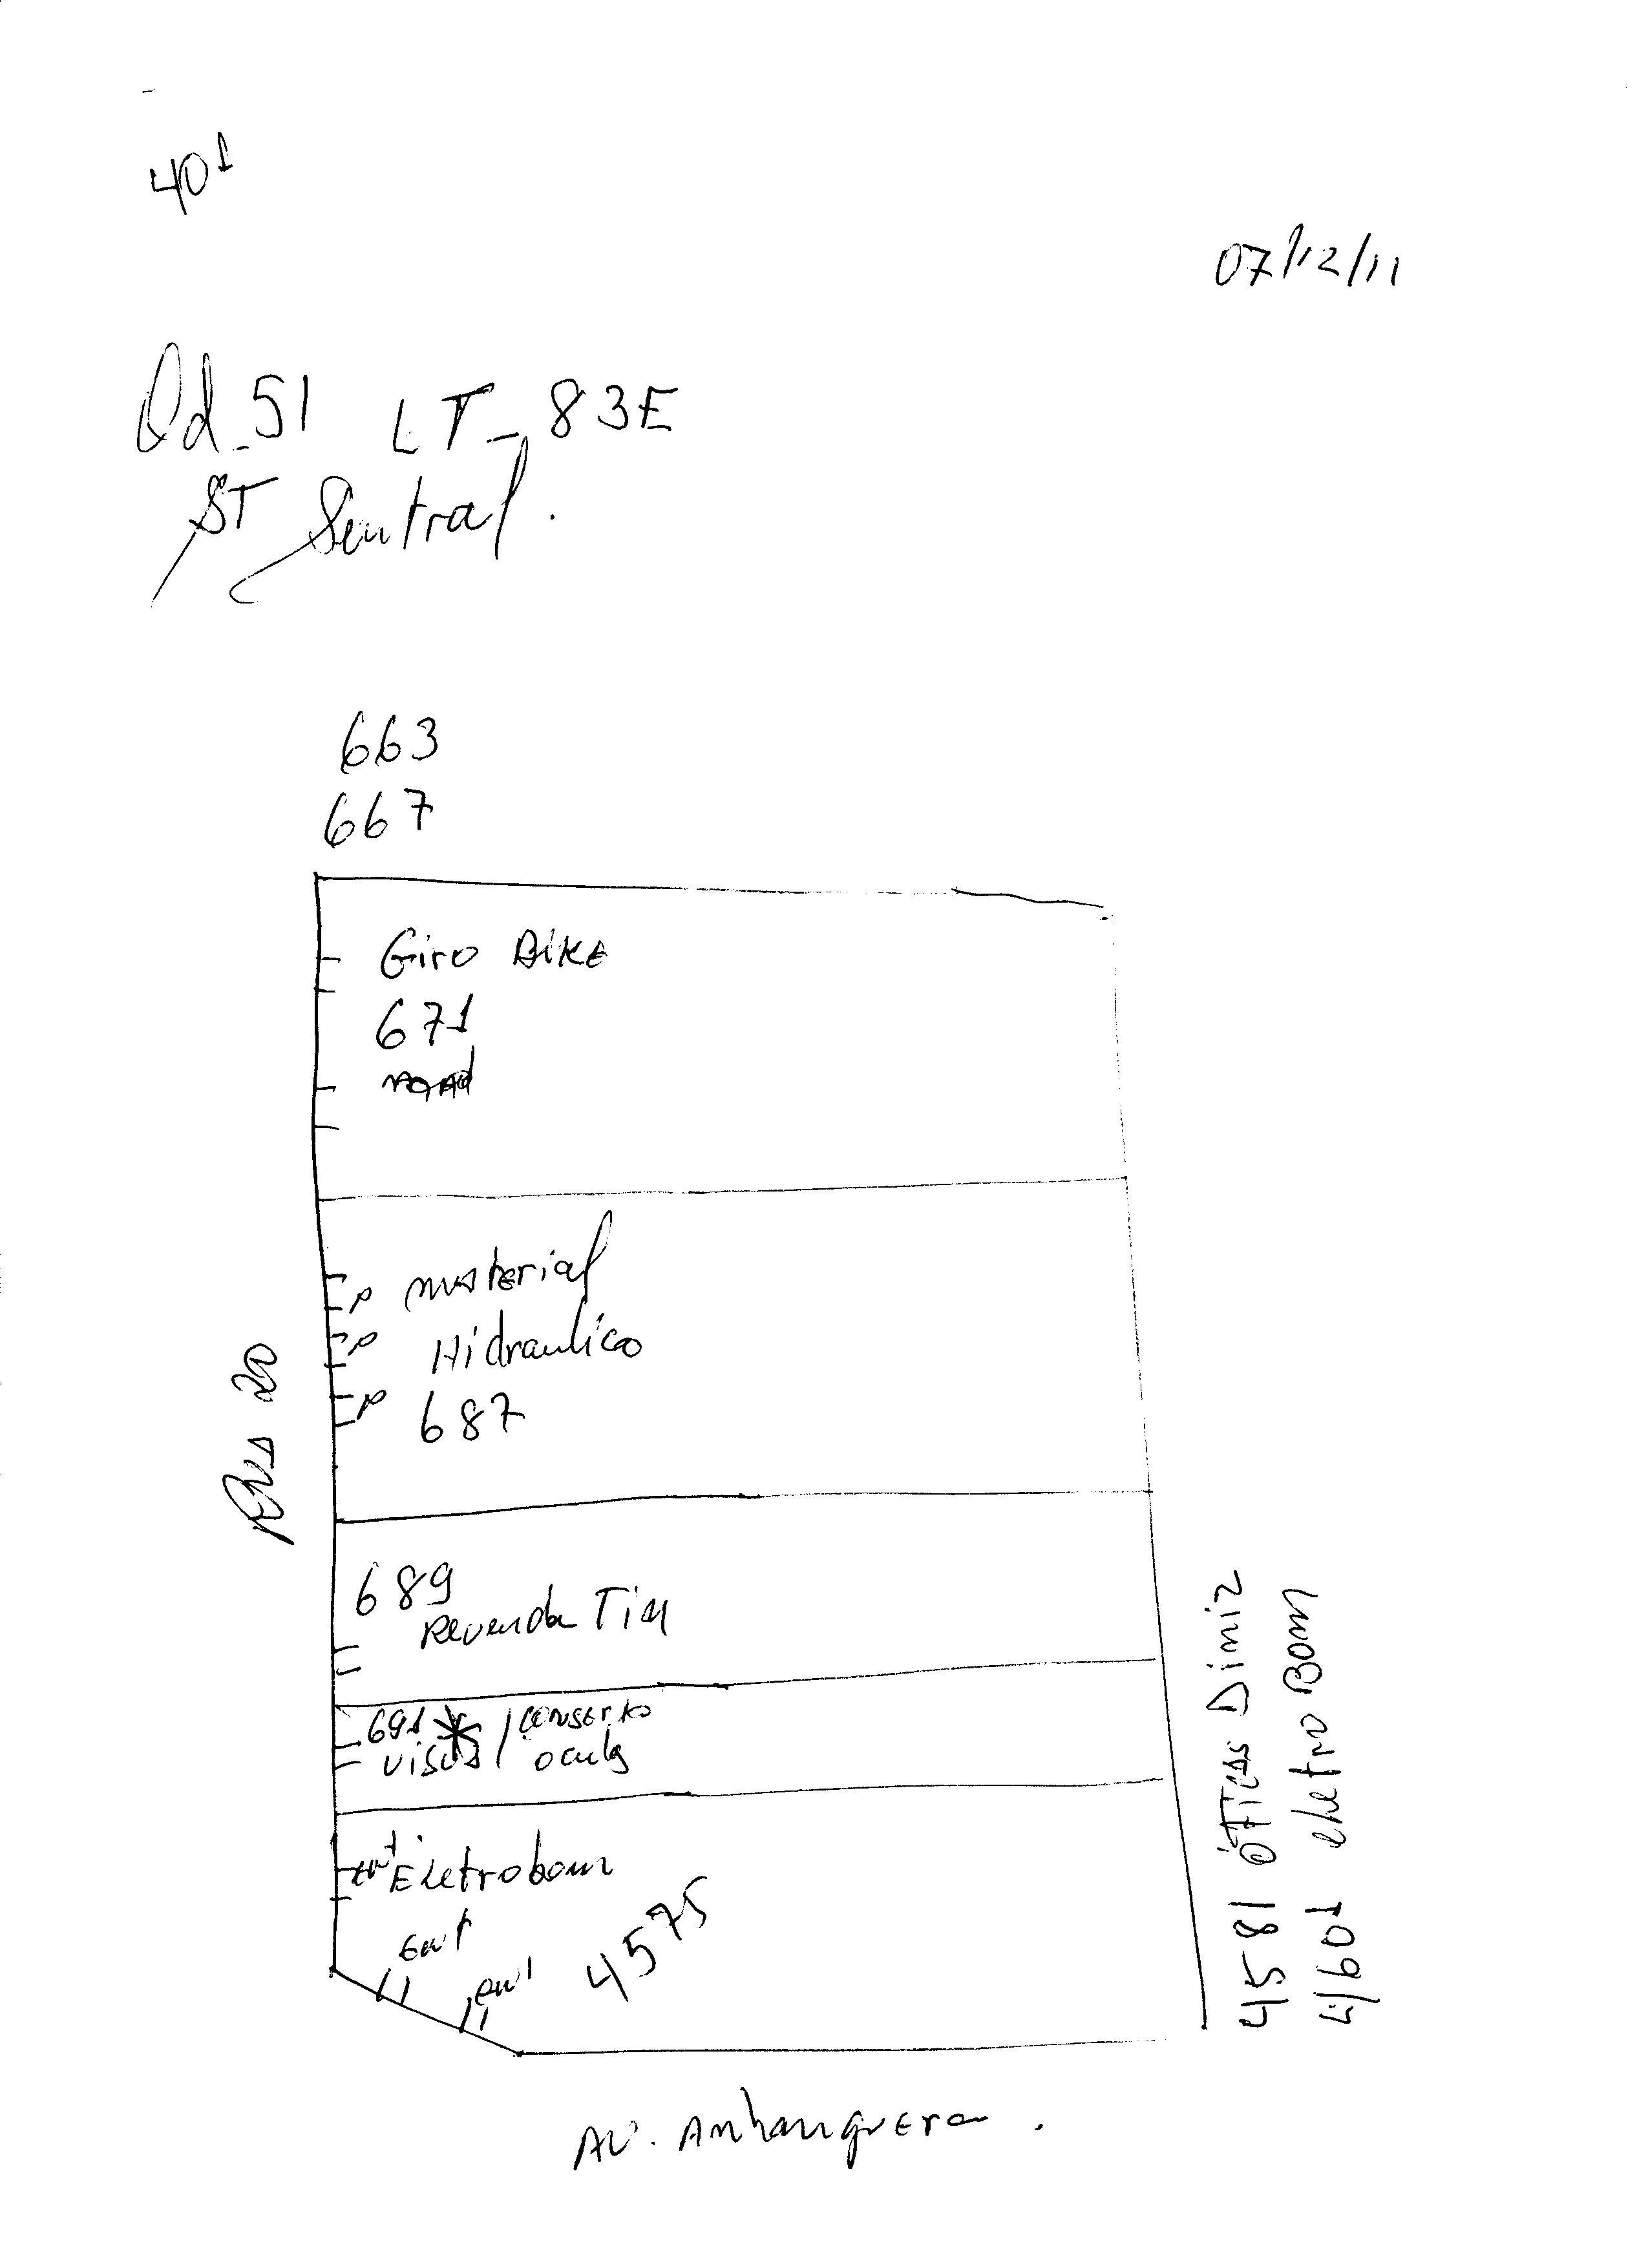 401
07/12/11
Qd_51 LT_83E
ST Sentral.
663
667
Giro Bike
671
material
Hidraulico
687
P
P
P
Rua 20
689
Revenda Tim
691 * / conserto
oculs
ent Eletrobom
ent
ent
4575
4581 óticas Diniz
4601 eletro Bom
AV. Anhanguera.